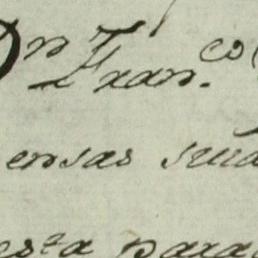 Dn Fran.co
ensas sua
esta para